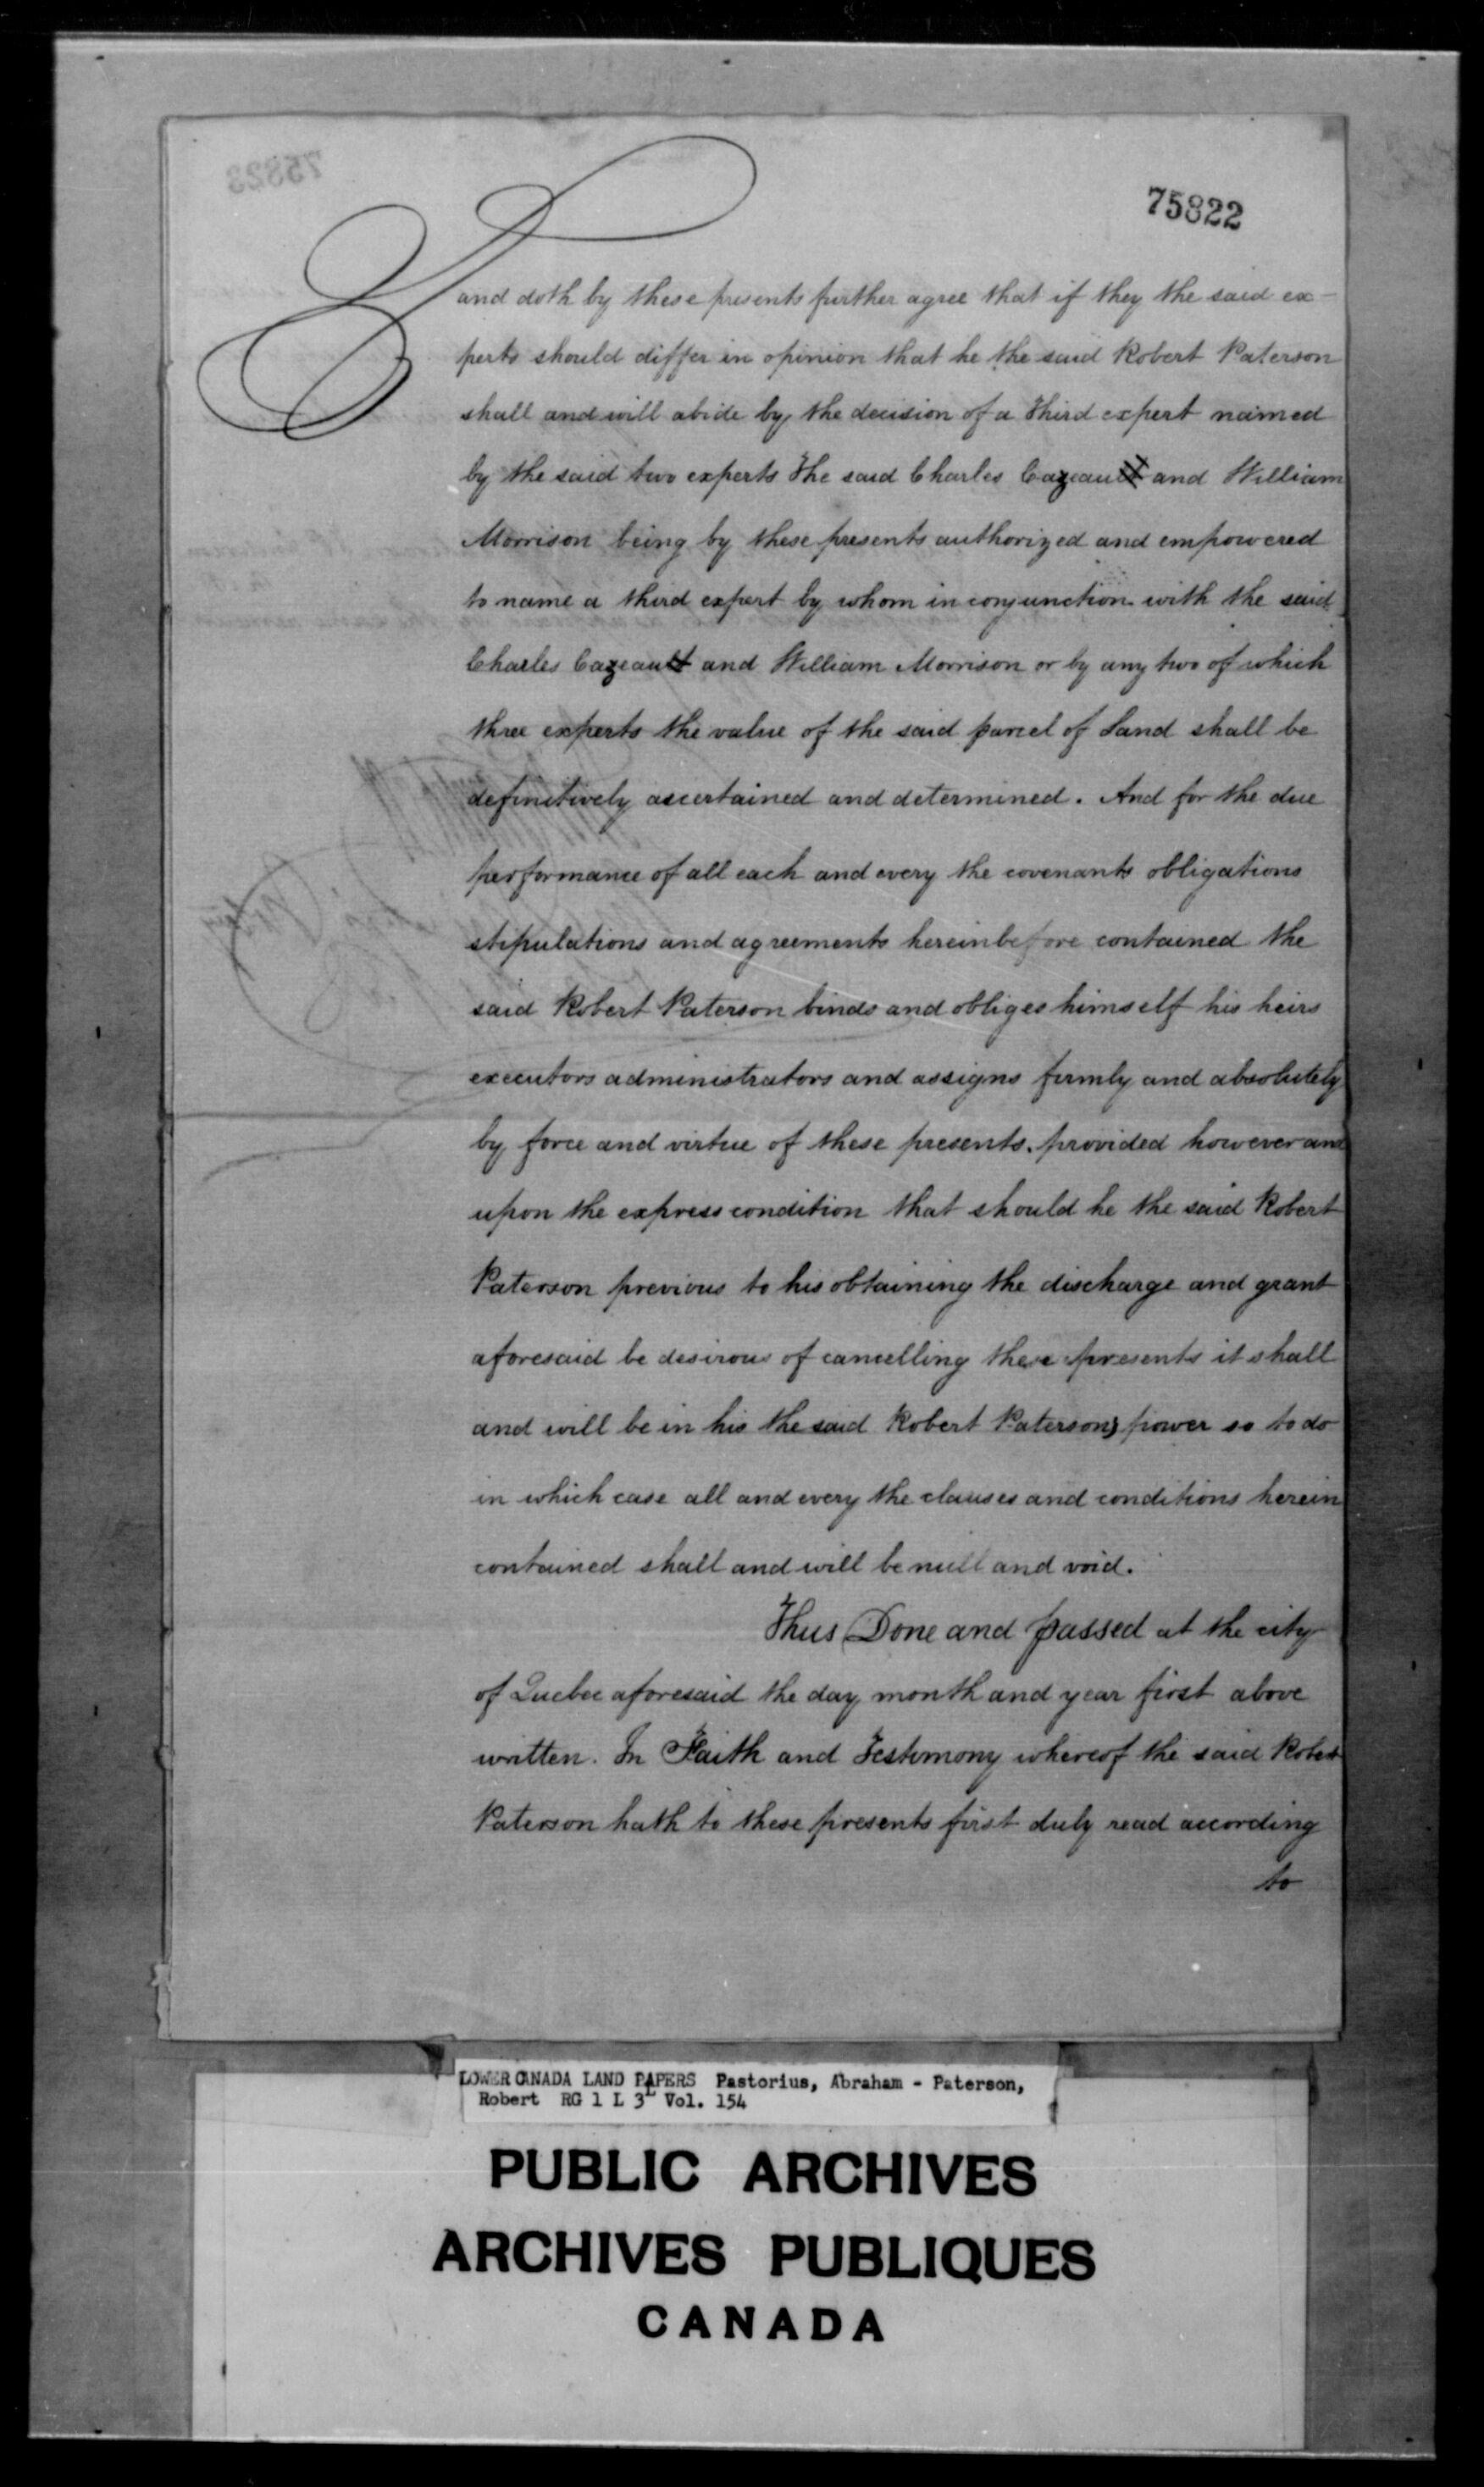 75822
and doth by these presents further agree that if they the said ex-
perts should differ in opinion that he the said Robert Paterson
shall and will abide by the decision of a third expert named
by the said two experts The said Charles Cazeau and William
Morrison being by these presents authorized and empowered
to name a third expert by whom in conjunction with the said
Charles Cazeau and William Morrison or by any two of which
three experts the value of the said parcel of Land shall be
definitively ascertained and determined. And for the due
performance of all each and every the covenants obligations
stipulations and agreements hereinbefore contained the
said Robert Paterson binds and obliges himself his heirs
executors administrators and assigns firmly and absolutely
by force and virtue of these presents. provided however and
upon the express condition that should he the said Robert
Paterson previous to his obtaining the discharge and grant
aforesaid be desirous of cancelling these presents it shall
and will be in his the said Robert Patersons power so to do
in which case all and every the clauses and conditions herein
contained shall and will be null and void.
Thus Done and passed at the city
of Quebec aforesaid the day month and year first above
written. In Faith and Testimony whereof the said Robert
Paterson hath to these presents first duly read according
to
LOWER CANADA LAND PAPERS Pastorius, Abraham - Paterson,
Robert RG 1 L 3L Vol. 154
PUBLIC ARCHIVES
ARCHIVES PUBLIQUES
CANADA